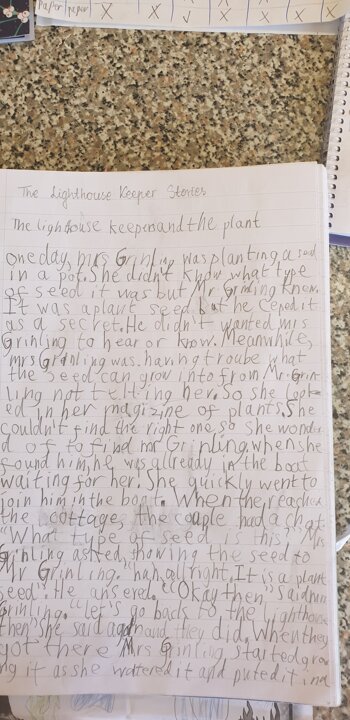 Paper paper X X ✓ X X X X
The Lighthouse Keeper Stories
The lighthouse keeper and the plant
one day mrs Grinling was planting a seed
in a pot. She didn't know what type
of seed it was but Mr Grinling knew.
It was a plant seed but he ceped it
as a secret. He didn't wanted mrs
Grinling to hear or know. Meanwhile,
mrs Grinling was having trouble what
the seed can grow into from Mr Grin
ling not telling her. So she look
ed in her magizine of plants. She
couldn't find the right one so she wonder
d of to find mr Grinling. when she
found him, he was allready in the boat
waiting for her. She quickly went to
join him in the boat. When the reached
the cottage, the couple had a chat.
"What type of seed is this" Mrs
Grinling asked, showing the seed to
Mr Grinling. "huh, allright. It is a plant
seed". He answered. "Okay then" said mrs
Grinling. "let's go back to the lighthouse
then" she said again and they did. When they
got there Mrs Grinling started grow
ng it as she wattered it and puted it in a